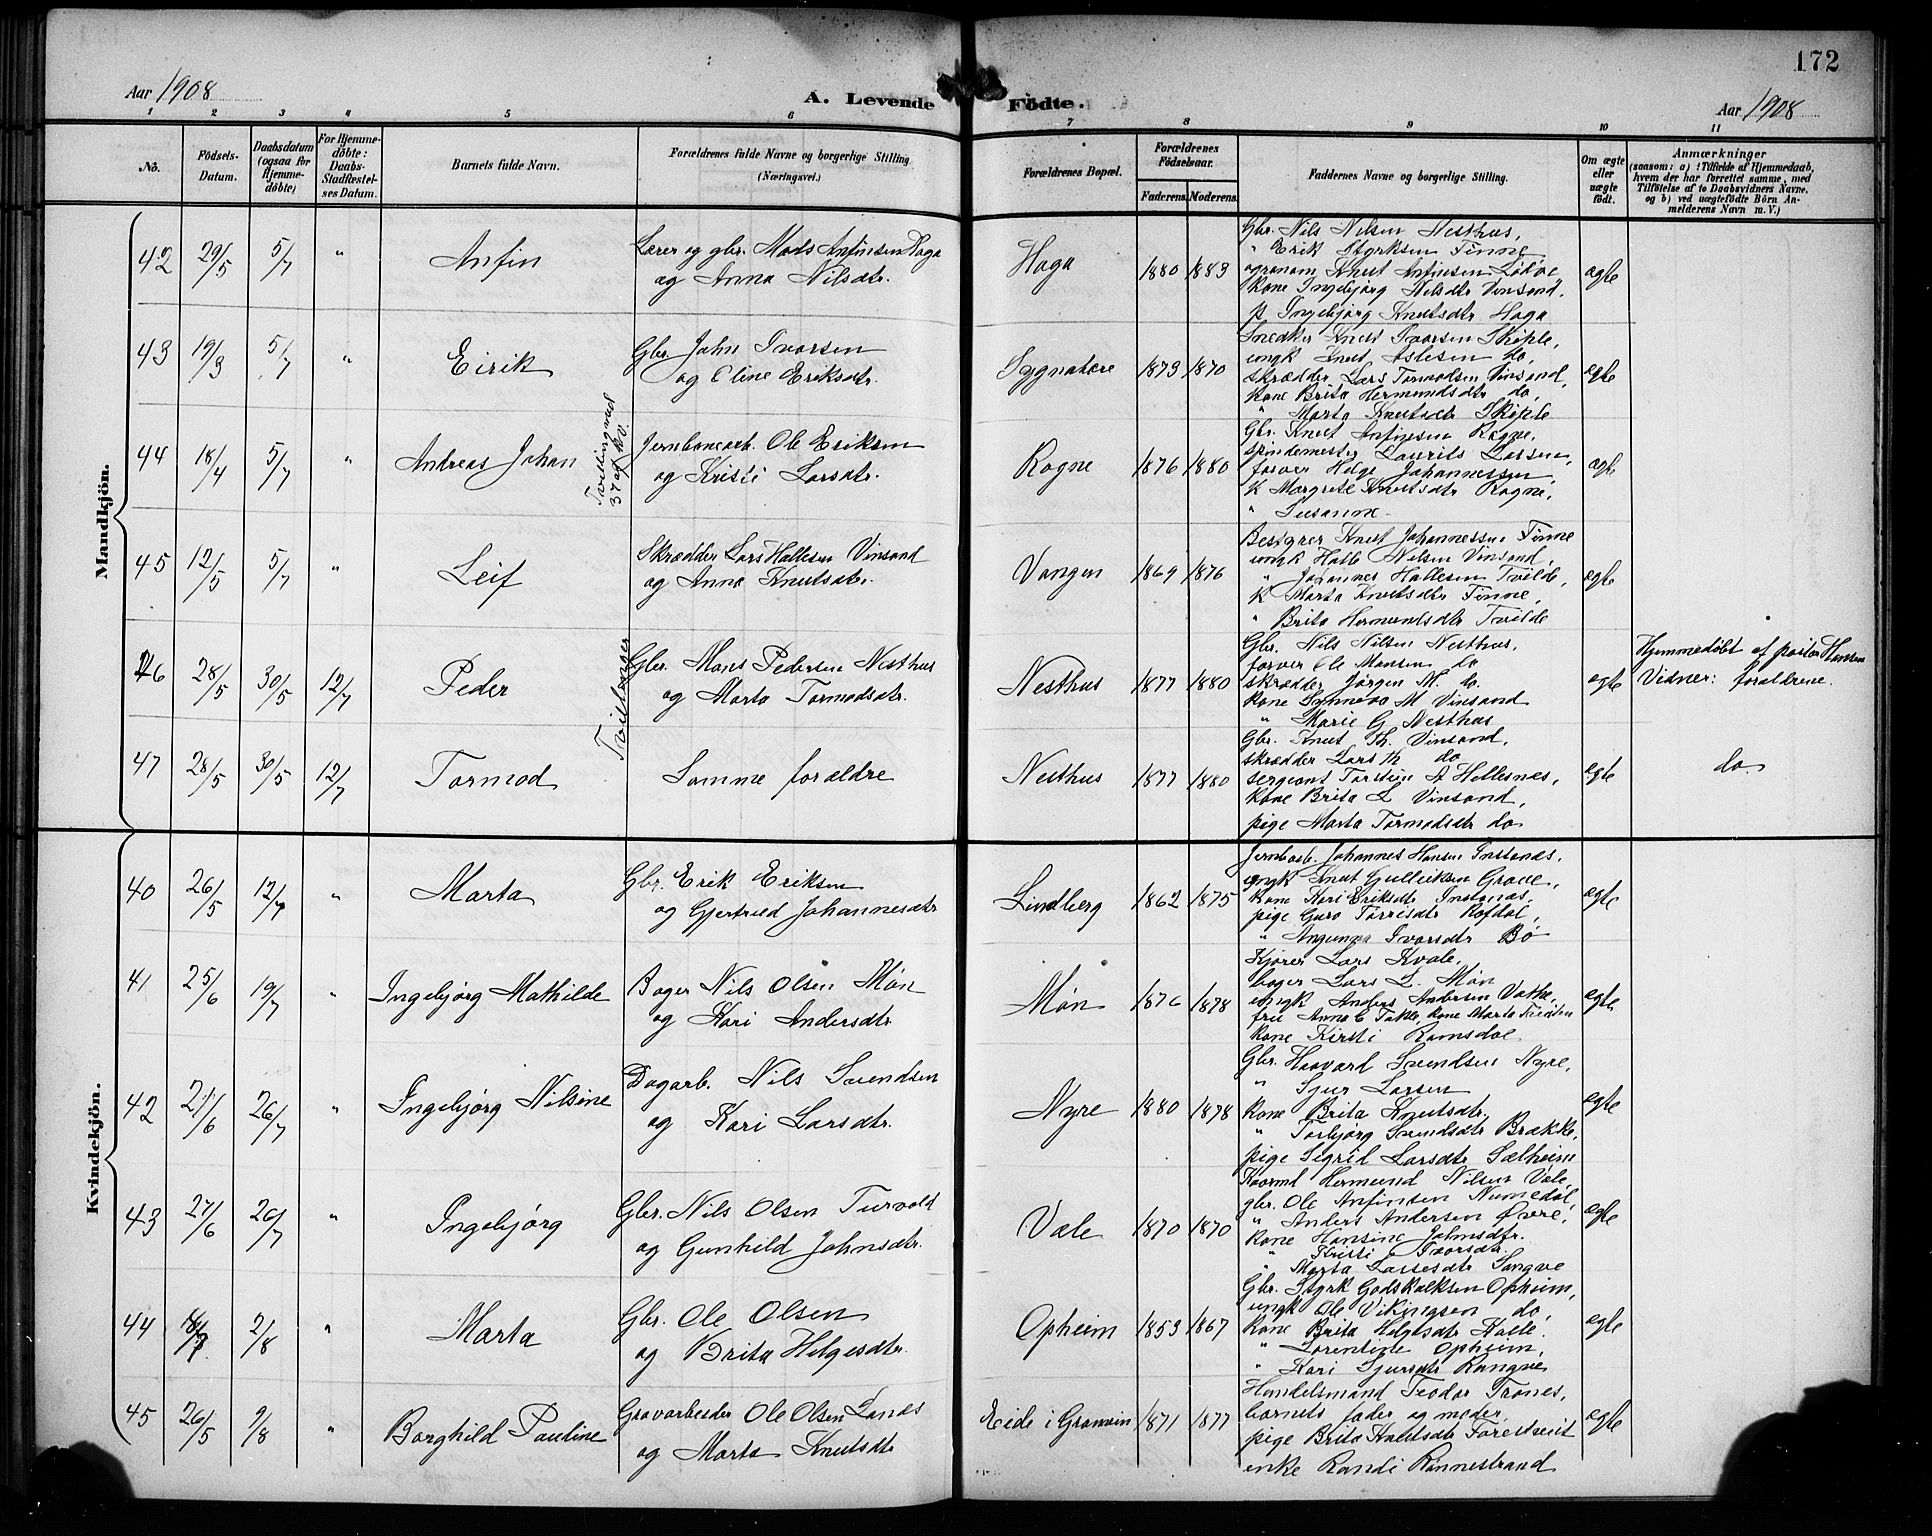 172
Aar 1908
A. Levende Födte.
Aar 1908
1 2 3 4 5 6 7 8 9 10 11
No.
Födsels-Datum.
Daabsdatum (ogsaa for Hjemme-döbte)
For Hjemme-döbte: Daabs-Stadfæstel-ses Datum.
Barnets fulde Navn.
Forældrenes fulde Navne og borgerlige Stilling (Næringsvei.)
Forældrenes Bopæl.
Forældrenes Födselsaar.
Faderens. Moderens.
Faddernes Navne og borgerlige Stilling.
Om ægte eller uægte födt.
Anmærkninger
(saasom: a) i Tilfælde af Hjemmedaab, hvem der har forrettet samme, med Tilföielse af to Daabsvidners Navne, og b) ved uægtefödte Börn An-melderens Navn m. V.)
Mandkjön.
42 29/5 5/7 " Anfin
Lærer og gbr. Mads Anfinsen Haga
og Anna Nilsdtr.
Haga 1880 1883
Gbr. Nils Nilsen Nesthus,
" Erik Styrksen Finne,
agronom Knut Anfinsen Lödve,
Kone Ingebjørg Nilsdtr Vinsand,
p. Ingebjørg Knutsdtr Haga
ægte
43 19/3 5/7 " Eirik
Gbr. John Ivarsen
og Eline Eriksdtr.
1873 1870
Snedker Knut Ivarsen Skiple,
ungk Knut Aslesen do,
skrædder Lars Tormodsen Vinsand,
kone Brita Hermundsdtr do,
" Marta Knutsdtr Skiple
ægte
44 18/4 5/7 " Andreas Johan
Tvilling med 37 af kv.
Jernbanearb. Ole Eriksen
og Kristi Larsdtr.
Rogne 1876 1880
Gbr. Knut Anfinsen Rogne,
spindemester Laurits Larsen,
farver Helge Johannessen,
K Margrete Knutsdtr Rogne,
" Susanne
ægte
45 12/5 5/7 " Leif
Skrædder Lars Hallesen Vinsand
og Anna Knutsdtr.
Vangen 1869 1876
Bestyrer Knut Johannessen Finne
ungk Halle Nilsen Vinsand,
" Johannes Hallesen Tvilde,
K Marta Knutsdtr Finne,
" Brita Hermundsdtr Tvilde
ægte
46 28/5 30/5 12/7 Peder
Tvillinger
Gbr. Mons Pedersen Nesthus
og Marta Tormodsdtr.
Nesthus 1877 1880
Gbr. Nils Nilsen Nesthus,
farver Ole Monsen do
skrædder Jørgen M. do.
Kone Synneva M Vinsand
" Marie G Nesthus
ægte
Hjemmedöbt af pastor Hansen
Vidner: forældrene.
47 28/5 30/5 12/7 Tormod
Samme forældre
Nesthus 1877 1880
Gbr. Knut Th. Vinsand,
skrædder Lars Th do
sergeant Torstein A Hellesnes,
Kone Brita L Vinsand,
pige Marta Tormodsdtr do
ægte
do.
Kvindekjön.
40 26/5 12/7 " Marta
Gbr. Erik Eriksen
og Gjertrud Johannesdtr
Lindberg 1862 1875
Jernbarb. Johannes Hansen Instenes,
ungk Knut Gulleiksen Grove,
kone Kari Eriksdtr Instenes,
pige Guro Torresdtr Rofdal,
" Angunna Ivarsdtr Bö
ægte
41 25/6 19/7 " Ingebjørg Mathilde
Bager Nils Olsen Møn
og Kari Andersdtr
Møn 1876 1878
Kjører Lars Kvale,
bager Lars L. Møn
ungk Anders Andersen Vathe,
fru Anna C Takle, kone Marta
kone Kirsti Ramsdal
ægte
42 21/6 26/7 " Ingebjørg Nilsine
Dagarb. Nils Svendsen
og Kari Larsdtr.
Nyre 1880 1878
Gbr. Haavard Svendsen Nyre,
" Sjur Larsen
kone Brita Knutsdtr,
" Torbjørg Svendsdtr Brække,
pige Sigrid Larsdtr Sælheim
ægte
43 27/6 26/7 " Ingebjørg
Gbr. Nils Olsen Turvold
og Gunhild Johnsdtr.
Væle 1870 1870
Kaarmd Hermund Nilsen Væle,
gbr. Ole Anfinsen Numedal
" Anders Andersen Øvre,
kone Hansine Johnsdtr.
" Kristi Ivarsdtr.
" Marta Larsesdtr Sangve
ægte
44 18/7 2/8 " Marta
Gbr. Ole Olsen
og Brita Helgesdtr.
Opheim 1853 1867
Gbr. Styrk Godskalksen Opheim,
ungk Ole Vikingsen do
kone Brita Helgesdtr
" Lorentine Opheim,
" Kari Sjursdtr Rangve
ægte
45 26/5 9/8 " Borghild Pauline
Gravarbeider Ole Olsen Landes
og Marta Knutsdtr
Eide i Granvin 1871 1877
Handelsmand Teodor Trones,
barnets fader og moder
pige Brita Knutsdtr
enke Randi Rönnestrand
ægte